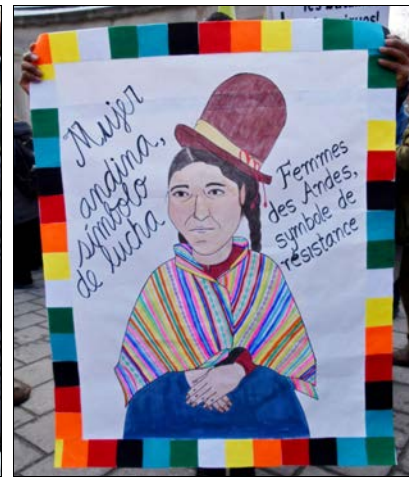 Mujer
andina,
símbolo
de lucha
Femmes
des Andes,
symbole de
résistance